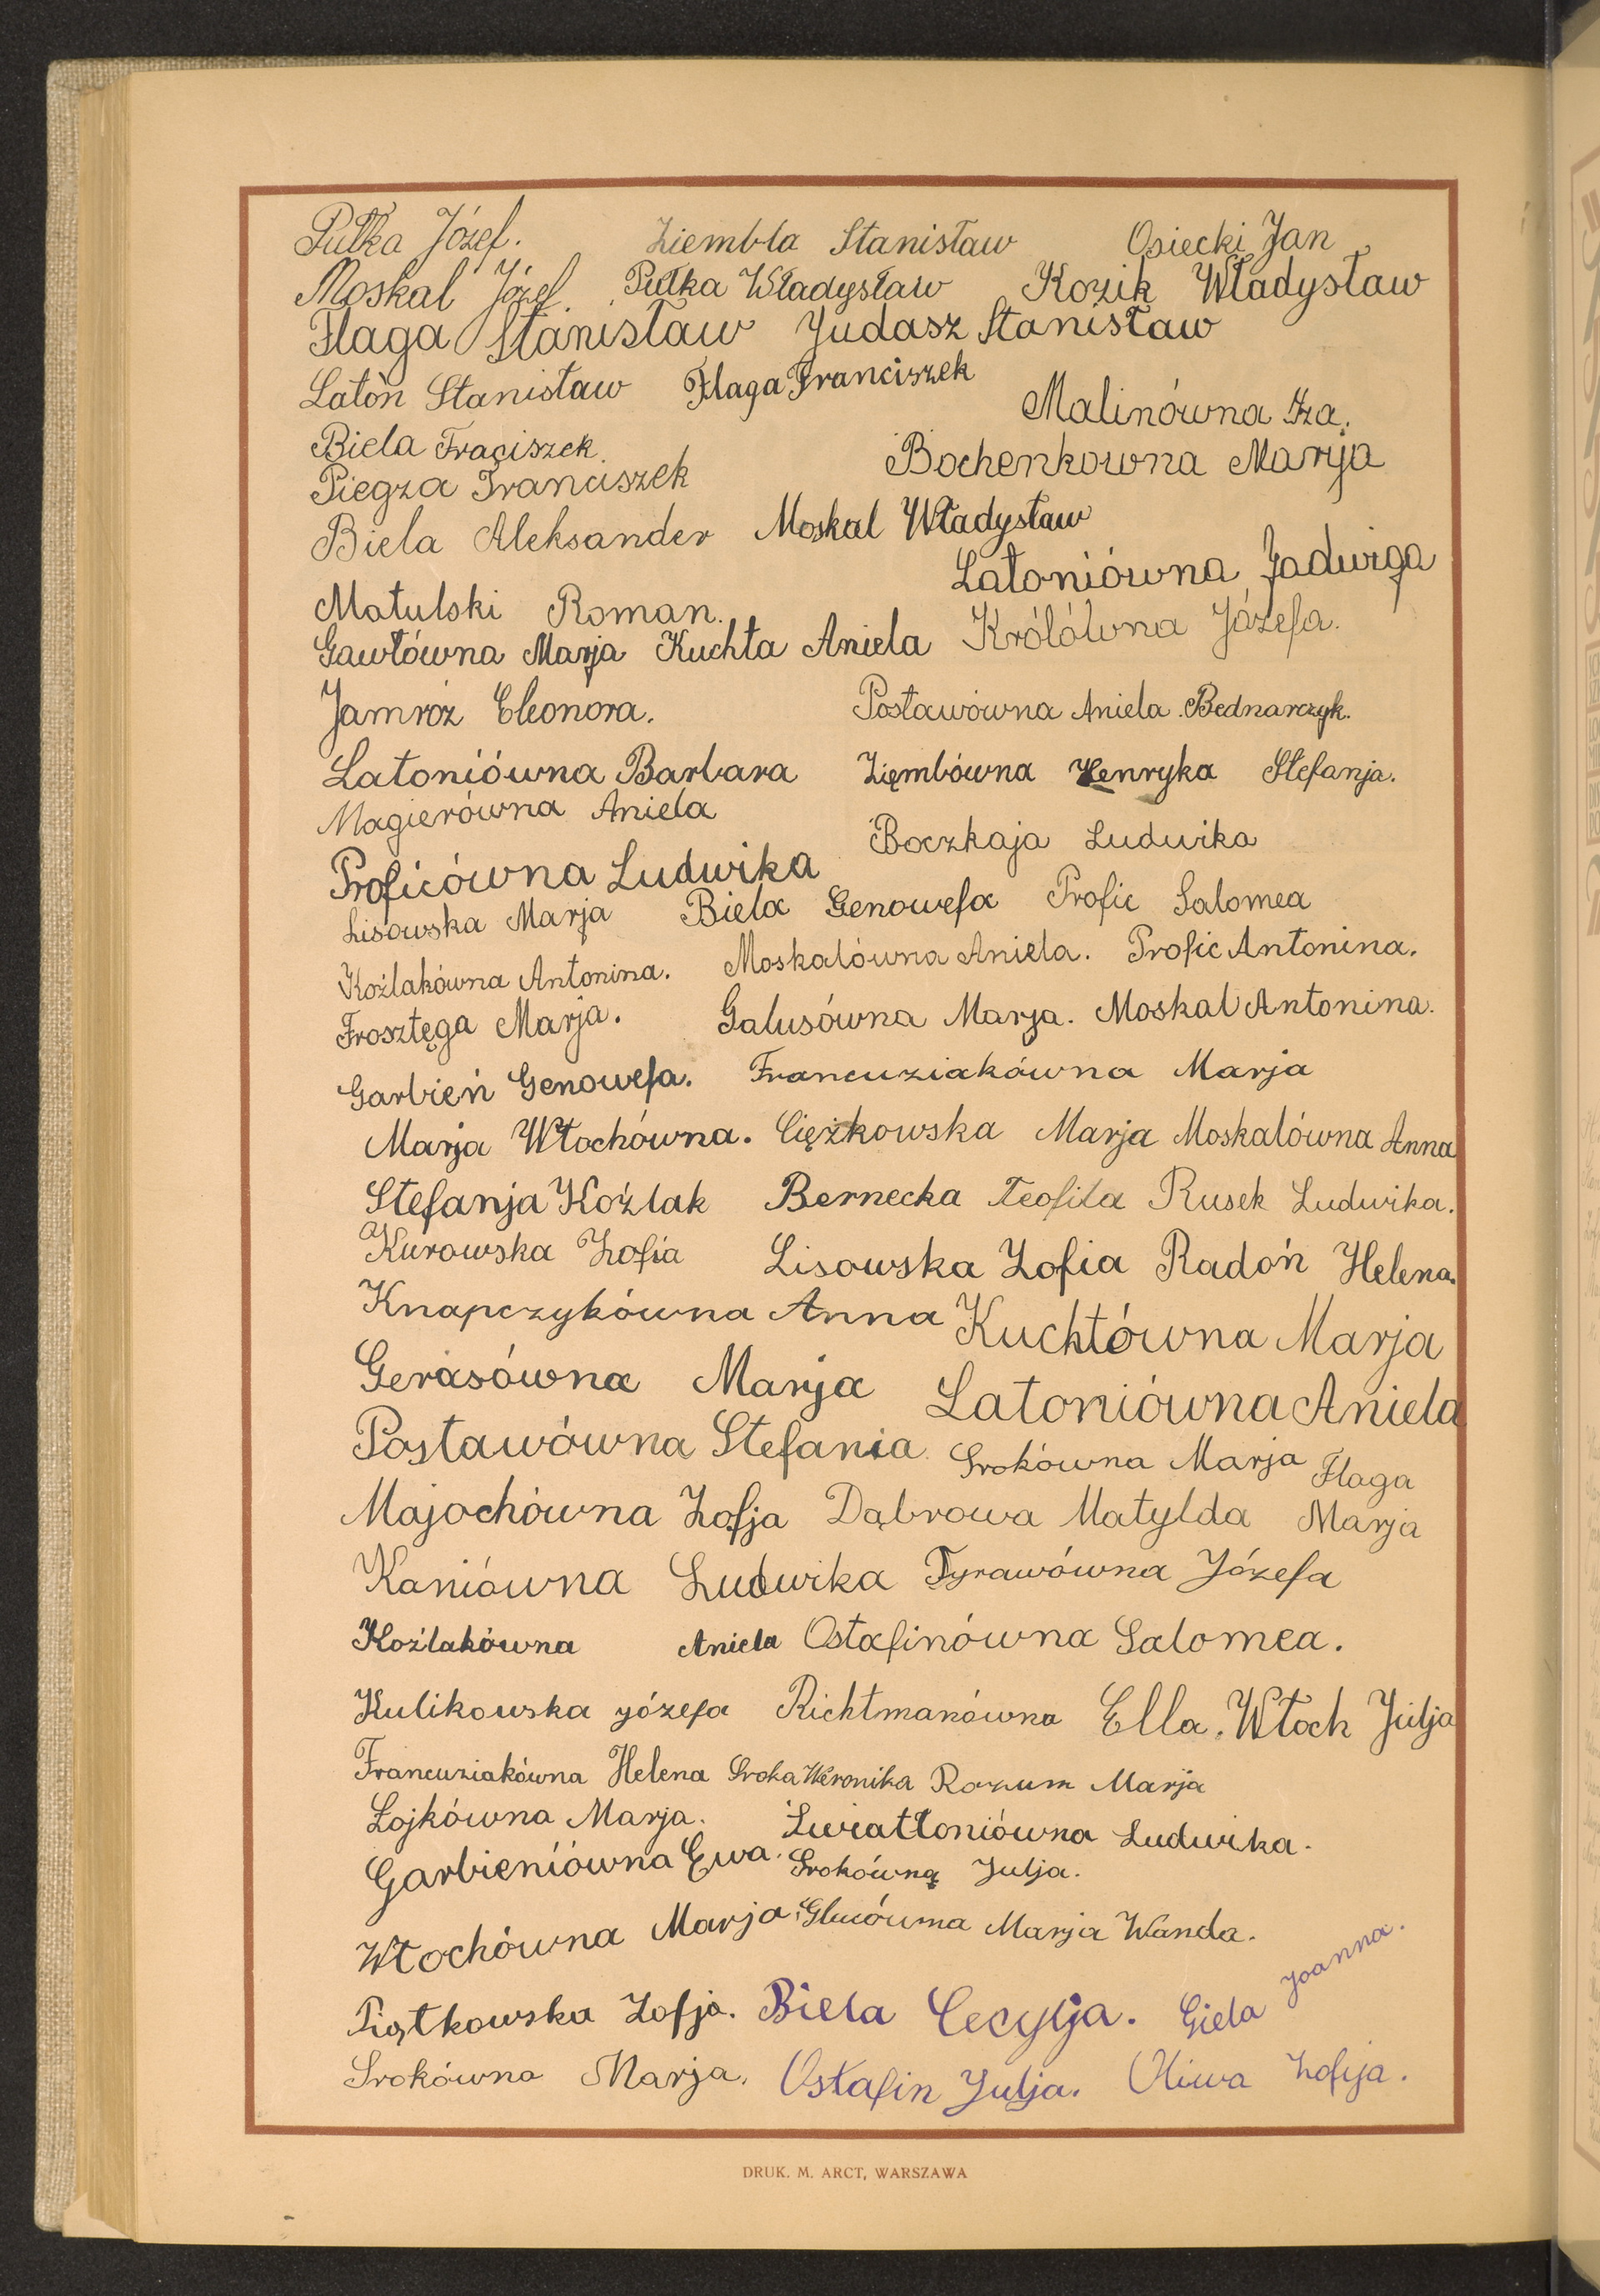 Pułka Józef. Ziembla Stanisław Osiecki Jan
Moskal Józef. Pułka Władysław Kozik Władysław
Flaga Stanisław Judasz Stanisław
Latòn Stanisław Flaga Franciszek
Malinówna Iza.
Biela Fraciszek.
Bochenkowna Marja
Piegza Franciszek
Biela Aleksander Moskal Władysław
Latoniówna Jadwiga
Matulski Roman.
Gawłówna Marja Kuchta Aniela Królówna Józefa.
Jamróz Eleonora. Postawówna Aniela Bednarczyk.
Latoniówna Barbara Ziembówna Henryka Stefanja.
Magierówna Aniela
Boczkaja Ludwika
Proficówna Ludwika
Lisowska Marja Biela Genowefa Profic Salomea
Koźlakówna Antonina. Moskalówna Aniela. Profic Antonina.
Frosztęga Marja. Galusówna Marja. Moskal Antonina.
Garbień Genowefa. Francuziakówna Marja
Marja Włochówna. Ciężkowska Marja Moskalówna Anna
Stefanja Koźlak Bernecka Teofila Rusek Ludwika.
Kurowska Zofia Lisowska Zofia Radoń Helena.
Knapczykówna Anna Kuchtówna Marja
Gerasówna Marja Latoniówna Aniela
Postawówna Stefania Srokówna Marja Flaga
Majochówna Zofja Dąbrowa Matylda Marja
Kaniówna Ludwika Tyrawówna Józefa
Koźlakówna Aniela Ostafinówna Salomea.
Kulikowska Józefa Richtmanówna Ella. Włoch Julja
Francuziakówna Helena Sroka Weronika Rozum Marja
Łojkówna Marja. Światłoniówna Ludwika.
Garbieniówna Ewa. Srokówną Julja.
Włochówna Marja. Glucówma Marja Wanda.
Piątkowska Zofja. Biela Cecylja. Giela Joanna.
Srokówna Marja. Ostafin Julja. Oliwa Zofija.
DRUK. M. ARCT, WARSZAWA